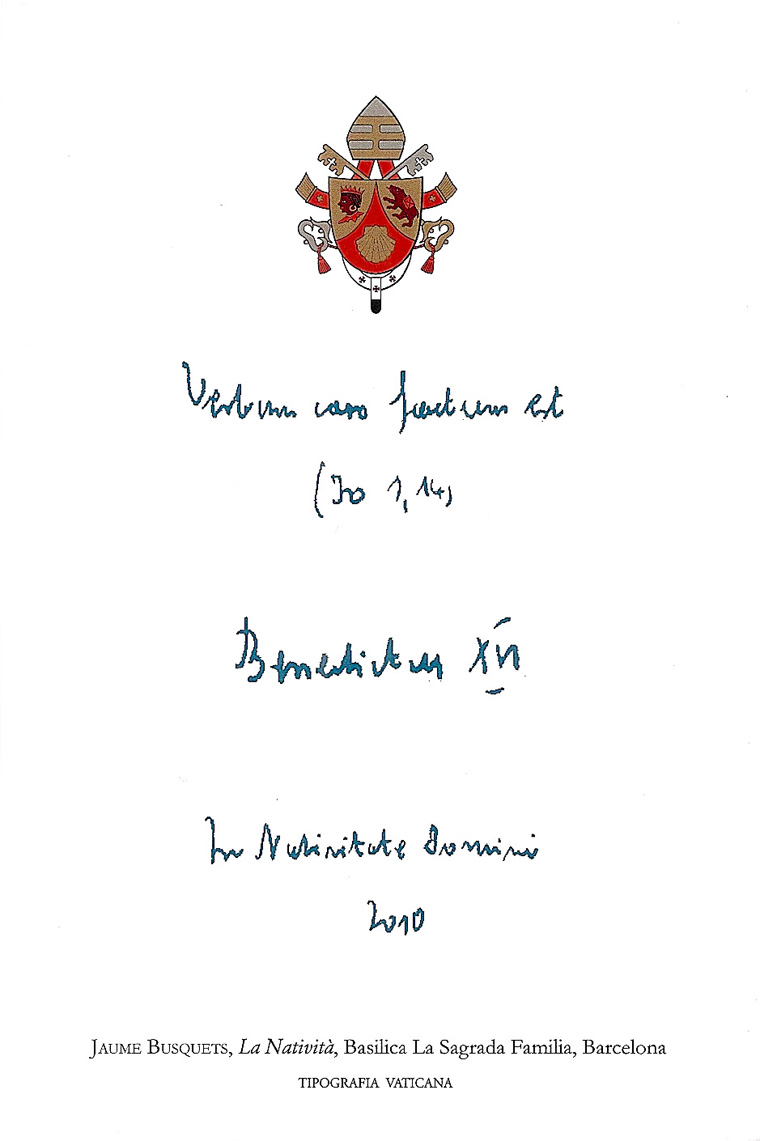 Verbum caro factum est
(Jo 1,14)
Benedictus XVI
In Nativitate Domini
2010
JAUME BUSQUETS, La Natività, Basilica La Sagrada Familia, Barcelona
TIPOGRAFIA VATICANA